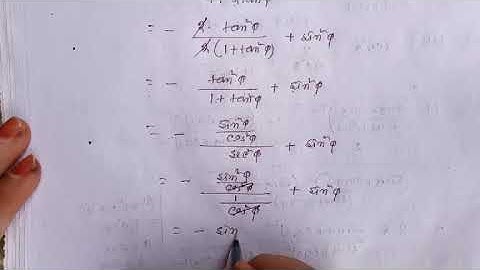 = - 2 · tan²φ / 2 (1 + tan²φ) + sin²φ
= - tan²φ / 1 + tan²φ + sin²φ
= - sin²φ / cos²φ / sec²φ + sin²φ
= - sin²φ / cos²φ / 1 / cos²φ + sin²φ
= - sin